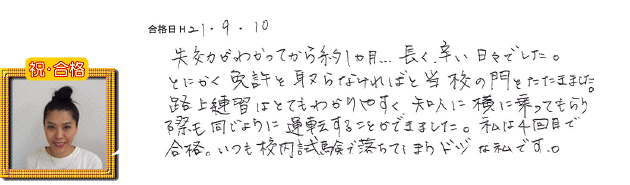 合格日 H21.9.10
失効がわかってから約1カ月…長く辛い日々でした。
とにかく免許を取らなければと当校の門をたたきました。
路上練習はとてもわかりやすく、知人に横に乗ってもらう
際も同じように運転することができました。私は4回目で
合格。いつも校内試験で落ちてしまうドジな私です。
祝・合格